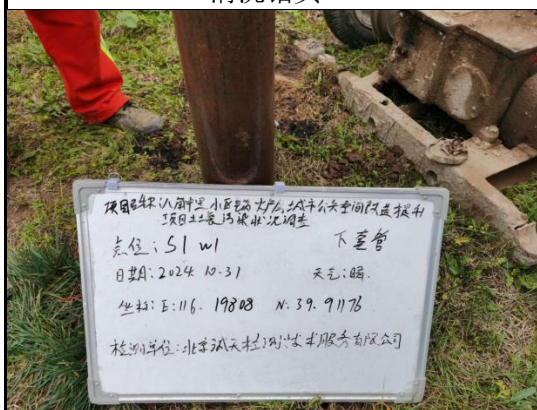 情况相关
项目名称:八角中里小区锅炉房、城市公共空间改造提升
项目土壤污染状况调查
点位:S1 W1 下套管
日期:2024.10.31 天气:晴.
坐标:E:116.19808 N:39.91176
检测单位:北京诚天检测技术服务有限公司